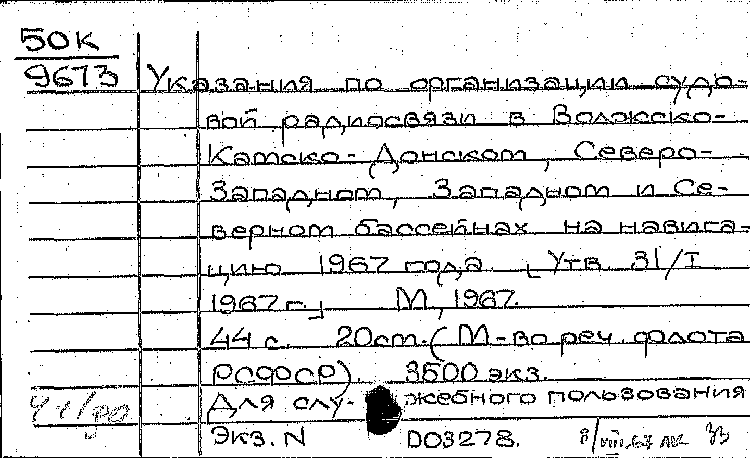 50К
9673 Указания по организации судо-
вой радиосвязи в Волжско-
Камско-Донском, Северо-
Западном, Западном и Се-
верном бассейнах на навига-
цию 1967 года. [Утв. 31/I
1967 г.] М, 1967.
44 с. 20см. (М-во реч. флота
РСФСР). 3500 экз.
Для слу- жебного пользования
Экз. N D03278.